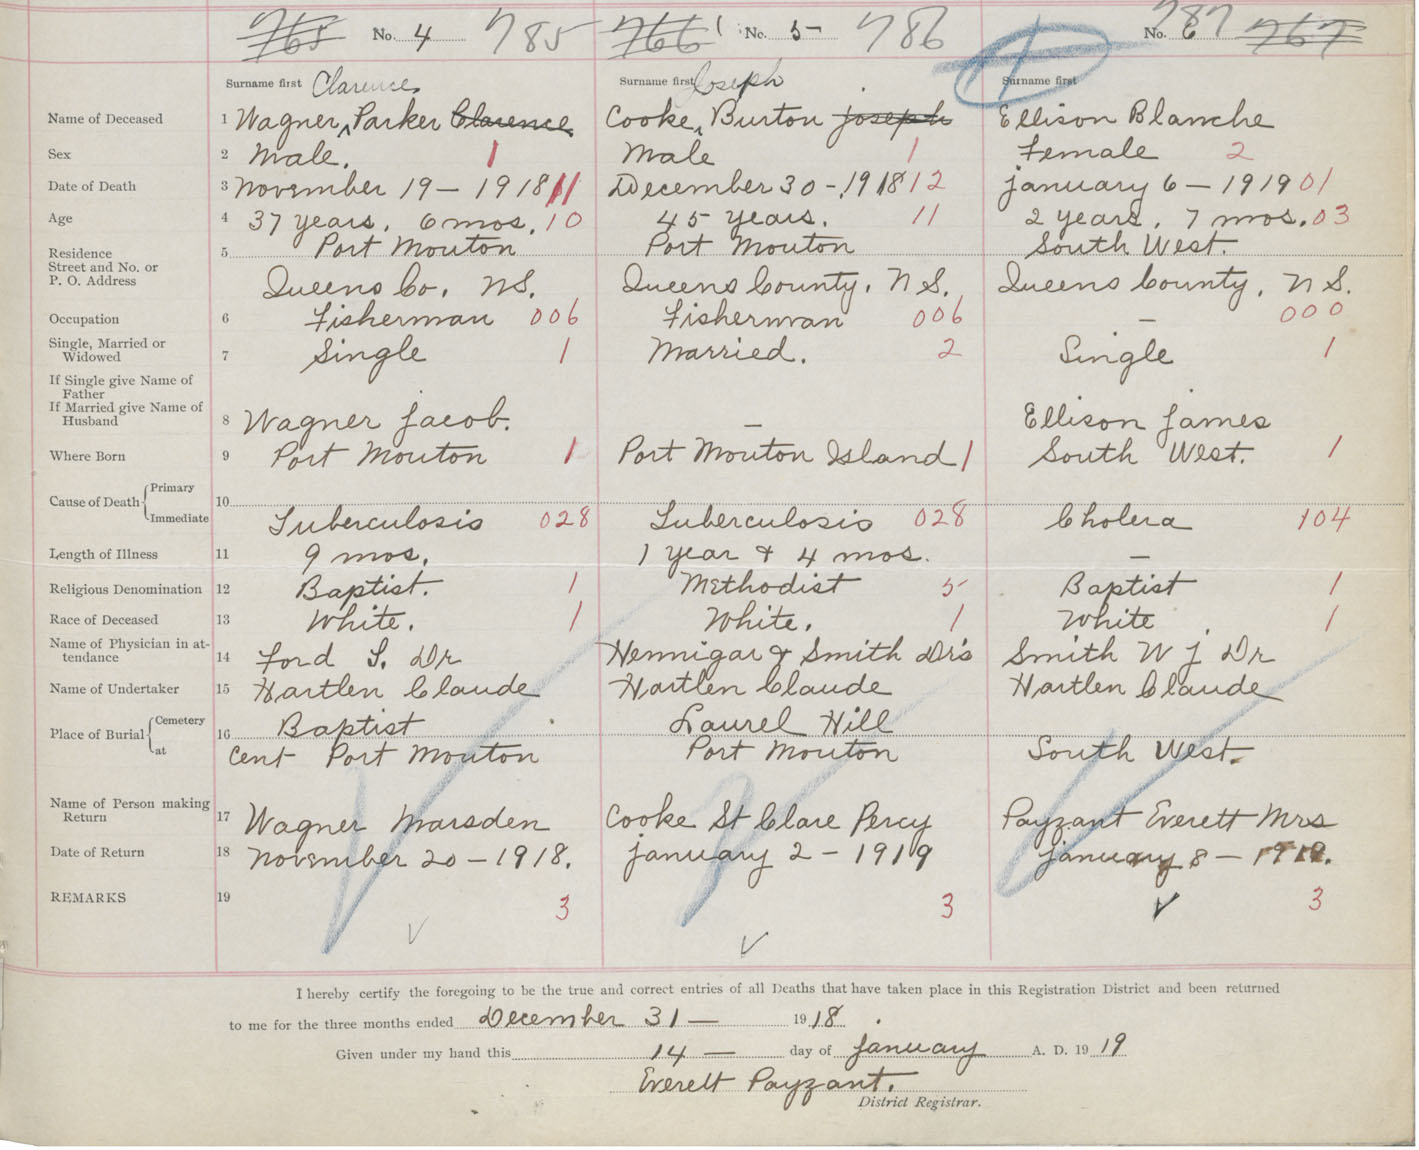 765 No. 4 785 766 No. 5 786 No. 6 787 767
Surname first Clarence Surname first Joseph Surname first
Name of Deceased 1 Wagner, Parker Clarence Cooke, Burton Joseph Ellison Blanche
Sex 2 Male. 1 Male 1 Female 2
Date of Death 3 November 19 - 1918 11 December 30 - 1918 12 January 6 - 1919 01
Age 4 37 years, 6 mos. 10 45 years. 11 2 years, 7 mos. 03
Residence 5 Port Mouton Port Mouton South West.
Street and No. or
P. O. Address Queens Co. N.S. Queens County, N S. Queens County, N S.
Occupation 6 Fisherman 006 Fisherman 006 — 000
Single, Married or
Widowed 7 Single 1 Married. 2 Single 1
If Single give Name of
Father
If Married give Name of
Husband 8 Wagner Jacob. — Ellison James
Where Born 9 Port Mouton 1 Port Mouton Island 1 South West. 1
Cause of Death Primary 10
Immediate Tuberculosis 028 Tuberculosis 028 Cholera 104
Length of Illness 11 9 mos. 1 year & 4 mos. —
Religious Denomination 12 Baptist. 1 Methodist 5 Baptist 1
Race of Deceased 13 White. 1 White. 1 White 1
Name of Physician in at-
tendance 14 Ford T. Dr Hennigar & Smith Dr's Smith W J Dr
Name of Undertaker 15 Hartlen Claude Hartlen Claude Hartlen Claude
Place of Burial Cemetery 16 Baptist Laurel Hill
at Cent Port Mouton Port Mouton South West.
Name of Person making
Return 17 Wagner Marsden Cooke St Clare Percy Payzant Everett Mrs
Date of Return 18 November 20 - 1918. January 2 - 1919 January 8 - 1919.
REMARKS 19 3 3 3
I hereby certify the foregoing to be the true and correct entries of all Deaths that have taken place in this Registration District and been returned
to me for the three months ended December 31 — 1918.
Given under my hand this 14 — day of January A. D. 1919
Everett Payzant.
District Registrar.